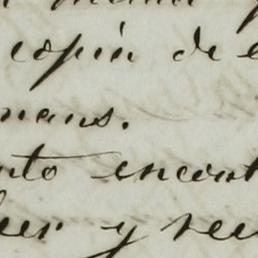 copia de
manos.
nto encont
leer y rec